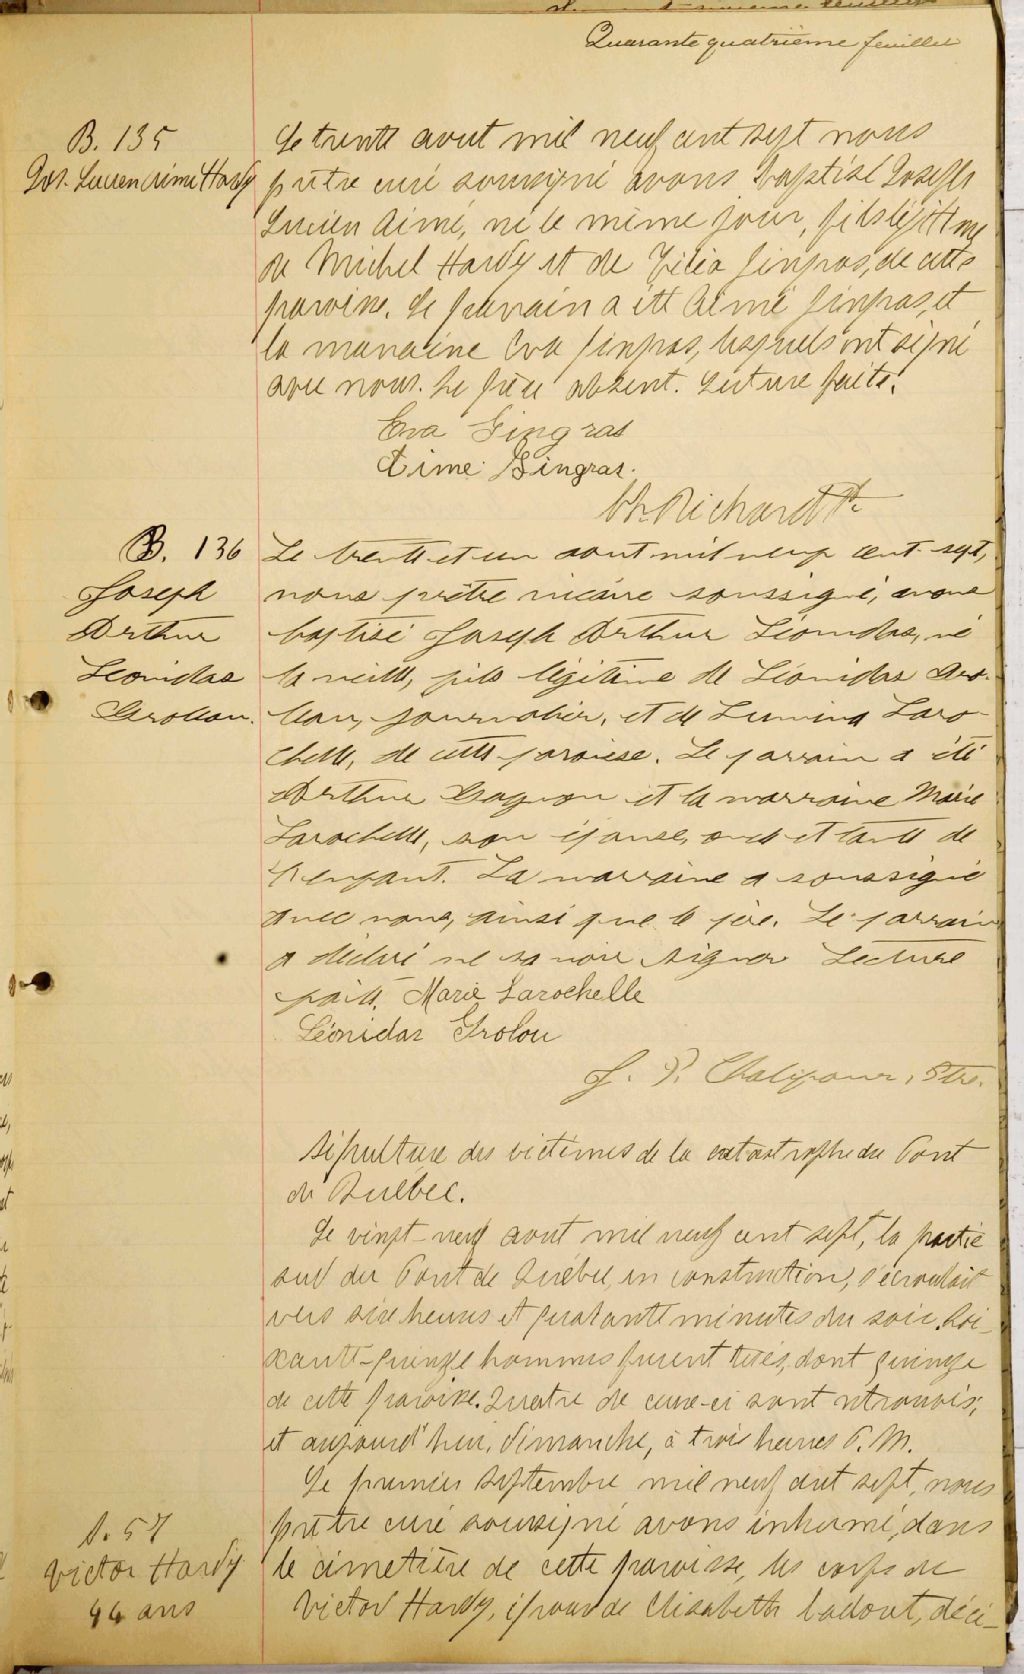 Quarante quatrième feuillet
B. 135
Jos. Lucien Aimé Hardy
Le trente aout mil neuf cent sept nous
prêtre curé soussigné avons baptisé Joseph
Lucien Aimé, né le même jour, fils légitime
de Michel Hardy et de Gingras, de cette
paroisse. Le parrain a été Aimé Gingras, et
la marraine Eva Gingras, lesquels ont signé
avec nous. Le père absent. Lecture faite.
Eva Gingras
Aime Gingras.
Ch. Richard Ptr.
B. 136
Joseph
Arthur
Leonidas
Grolleau.
Le trente et un aout mil neuf cent sept,
nous prêtre vicaire soussigné, avons
baptisé Joseph Arthur Léonidas, né
la veille, fils légitime de Léonidas Gro-
leau, journalier, et de Lumina Laro-
chelle, de cette paroisse. Le parrain a été
Arthur Gagnon et la marraine Marie
Larochelle, son épouse, oncle et tante de
l'enfant. La marraine a soussigné
avec nous, ainsi que le père. Le parrain
a déclaré ne savoir signer Lecture
faite. Marie Larochelle
Léonidas Grolou
J. P. Ptre.
Sépulture des victimes de la catastrophe du Pont
de Québec.
Le vingt-neuf aout mil neuf cent sept, la partie
sud du Pont de Québec, en construction, s'écroulait
vers six heures et quarante minutes du soir. Soi-
xante-quinze hommes furent tués, dont quinze
de cette paroisse. Quatre de ceux-ci sont retrouvés;
et aujourd'hui, dimanche, à trois heures P.M.
Le premier septembre mil neuf cent sept, nous
S. 57
Victor Hardy
44 ans
prêtre curé soussigné avons inhumé, dans
le cimetière de cette paroisse, les corps de
Victor Hardy, époux de Elisabeth Badout, décé-